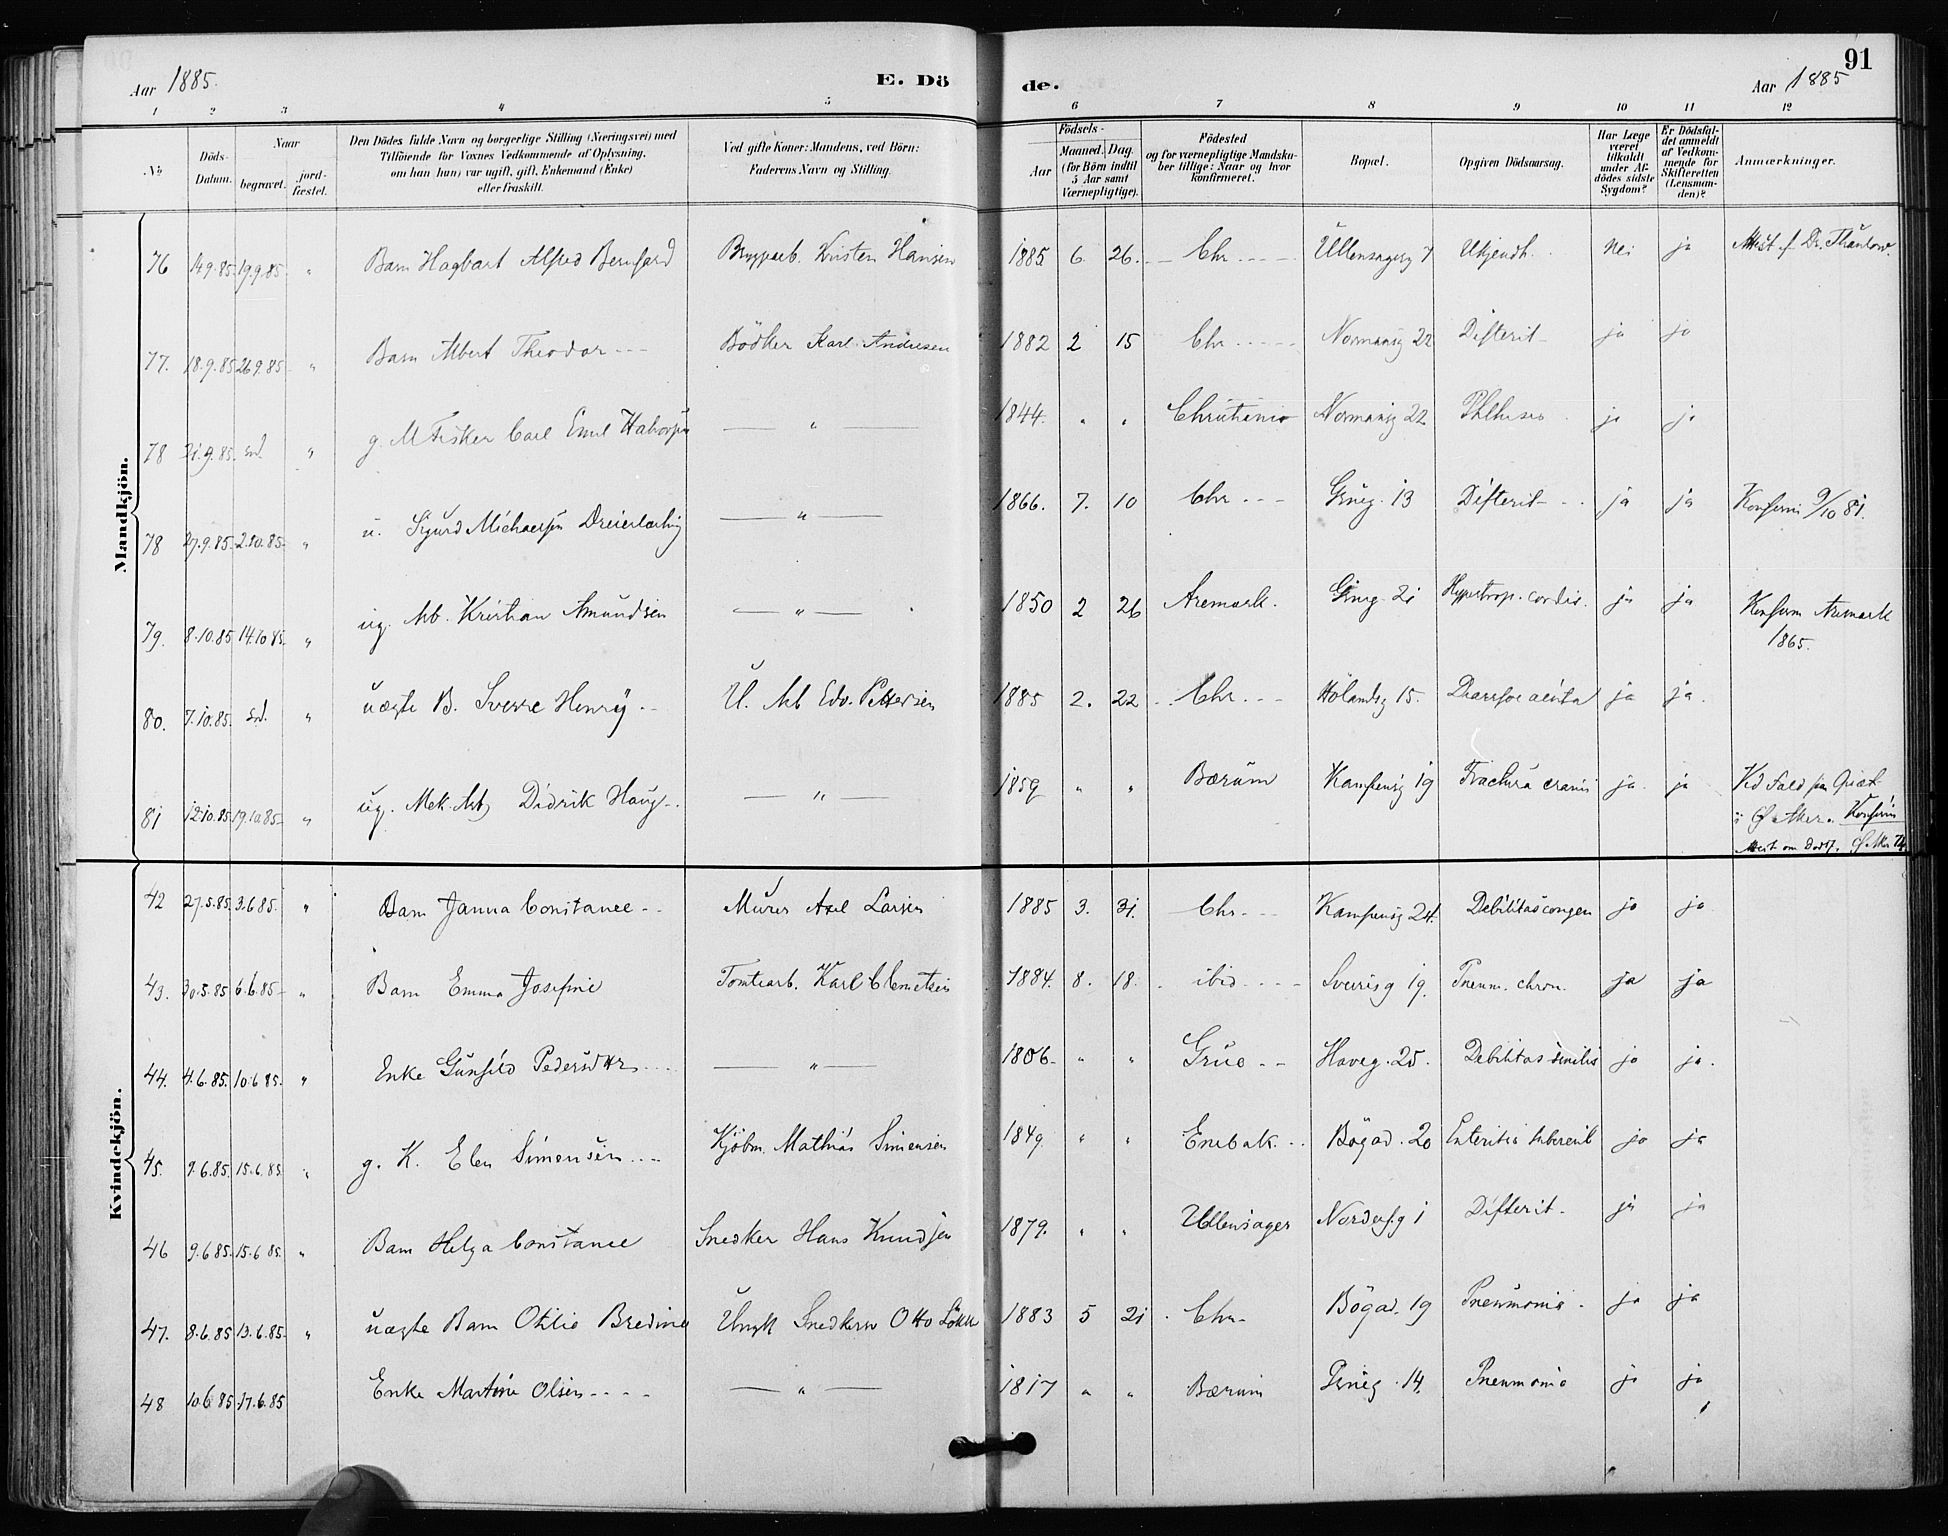 91
Aar 1885.
E. Dö
de.
Aar 1885
1 2 3 4 5 6 7 8 9 10 11 12
No
Döds-Datum.
Naar
begravet.
jord-fæstet.
Den Dödes fulde Navn og borgerlige Stilling (Næringsvei) med
Tilföiende for Voxnes Vedkommende af Oplysning,
om han (hun) var ugift, gift, Enkemand (Enke)
eller fraskilt.
Ved gifte Koner: Mandens, ved Börn:
Faderens Navn og Stilling.
Födsels-
Aar
Maaned. Dag
(for Börn indtil
5 Aar samt
Værnepligtige).
Födested
og for værnepligtige Mandska-
ber tillige: Naar og hvor
konfirmeret.
Bopæl.
Opgiven Dödsaarsag.
Har Læge
været
tilkaldt
under Af-
dödes sidste
Sygdom?
Er Dödsfal-
det anmeldt
af Vedkom-
mende for
Skifteretten
(Lensman-
den)?
Anmærkninger.
Mandkjön.
76 14.9.85 19.9.85 " Barn Hagbart Alfred Bernhard Bryggarb. Kristen Hansen 1885 6. 26. Chr. Ullensagerg 7 Ukjendt. Nei ja Attest f. Dr. Thaulow.
77. 18.9.85 26.9.85 " Barn Albert Theodor Bödker Karl Andresen 1882 2 15 Chr. Normansg 22 Difterit ja ja
78 21.9.85. sd. " g. M Fisker Carl Emil Halvorsen " 1844. " " Christiania Normansg 22 Phthisis ja ja
78 27.9.85. 2.10.85. " u. Sigurd Michaelsen Dreierlærling " 1866. 7. 10 Chr. Grüeg. 13 Difterit ja ja Konfirm 9/10 81.
79. 8.10.85 14.10.85. " ug. Arb. Kristian Amundsen " 1850 2 26 Aremark. Grüeg. 21 Hypertrop. cordis. ja ja Konfirm Aremark
1865.
80. 7.10.85. sd. " uægte B. Sverre Henry U. Arb Edv. Pettersen 1885 2. 22 Chr. Hölandsg 15. Diarrhoe acuta ja ja.
81 12.10.85 19.10.85 " ug. Mek. Arb Didrik Haug " 1859 " " Bærum Kampensg 19 Fractura cranii ja ja Vd Fald paa
i Ø. Aker. Konfirm
Attest om Dödsf. Ø Aker 74
Kvindekjön.
42 27.5.85. 3.6.85. " Barn Janna Constance Murer Axel Larsen 1885 3. 31. Chr. Kampensg 24. Debilitas congen ja ja
43. 30.5.85 6.6.85 " Barn Emma Josefine Tomtearb. Karl Clemetsen 1884. 8. 18. ibid. Sverisg 19. Pneum. chron. ja ja
44. 4.6.85. 10.6.85. " Enke Gunhild Pedersdtr " 1806 " " Grue Haveg. 25. Debilitas senilis ja ja.
45. 9.6.85. 15.6.85. " g. K. Elen Simensen Kjöbm. Mathias Simensen 1849. " " Enebak Bögad. 20 Enteritis tubercul ja ja
46 9.6.85. 15.6.85. " Barn Helga Constance Snedker Hans Knudsen 1879. " " Ullensager Norderhg 1 Difterit ja ja
47. 8.6.85 13.6.85. " uægte Barn Otilie Bredine Ungk Snedkersv Otto Lökke 1883 5 21 Chr. Bögad. 19 Pneumonia ja ja
48 10.6.85. 17.6.85 Enke Martine Olsen " 1817 " " Bærum Grüeg. 14. Pneumonia ja ja